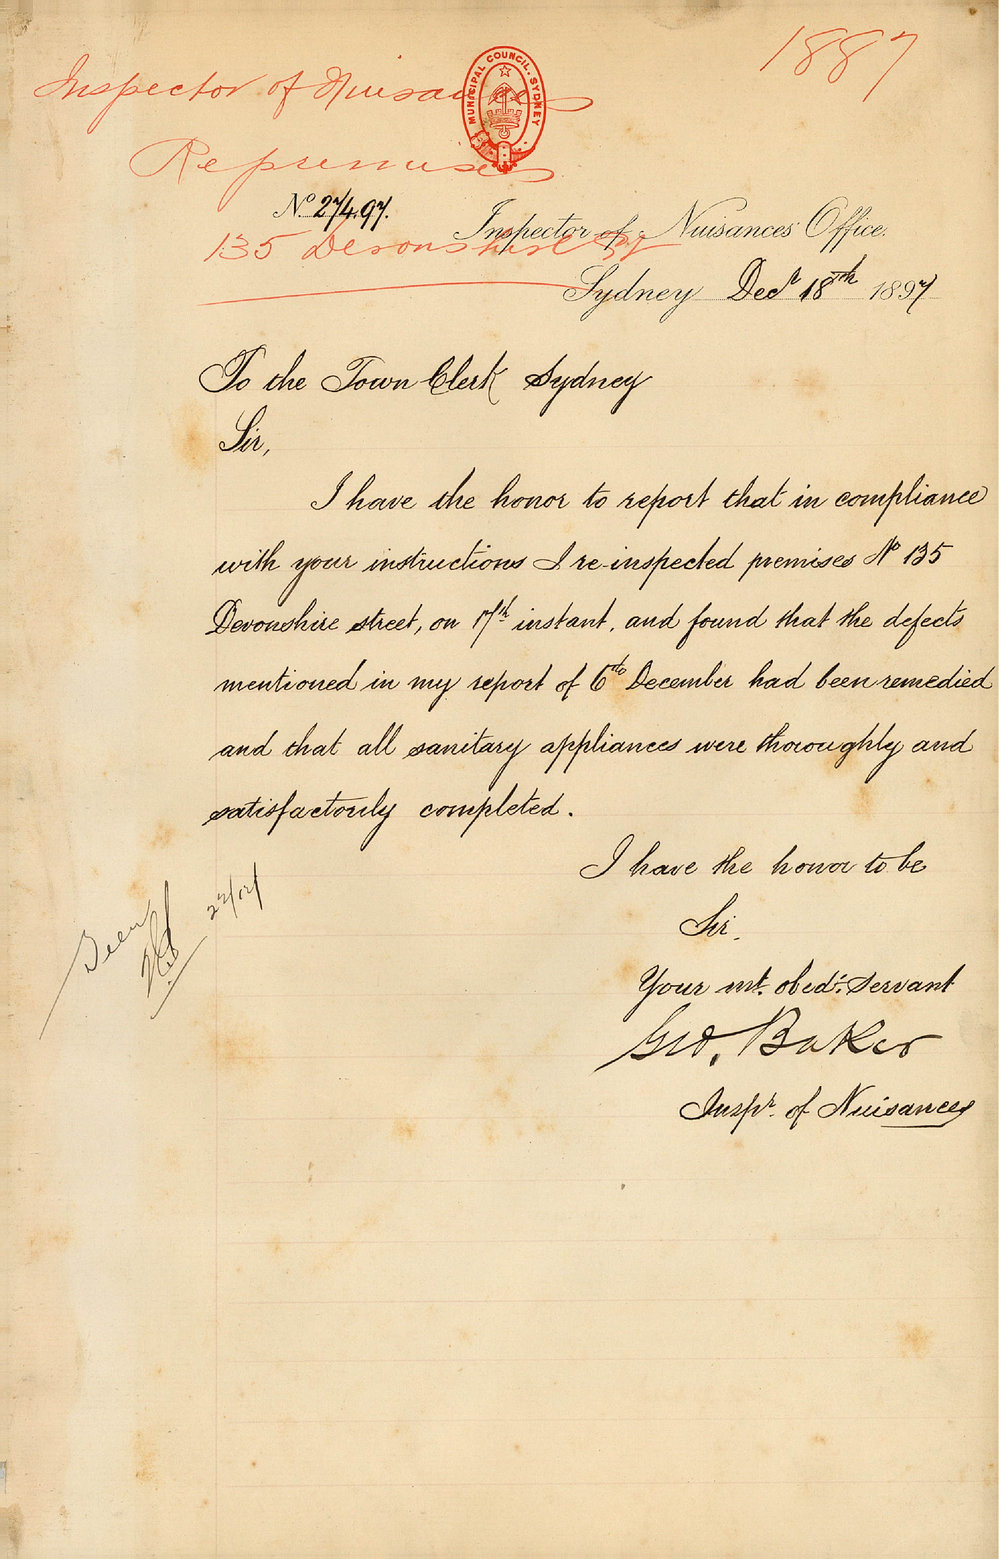 1887
Inspector of Nuisances
MUNICIPAL COUNCIL. SYDNEY
Re premises
No 274.97.
Inspector of Nuisances' Office.
135 Devonshire St
Sydney Decr 18th 1897
To the Town Clerk Sydney
Sir,
I have the honor to report that in compliance
with your instructions I re-inspected premises No 135
Devonshire street, on 17th instant, and found that the defects
mentioned in my report of 6th December had been remedied
and that all sanitary appliances were thoroughly and
satisfactorily completed.
I have the honor to be
Sir.
Your mt. obedt. servant
Geo. Baker
Inspr. of Nuisances
Seen
22/12/